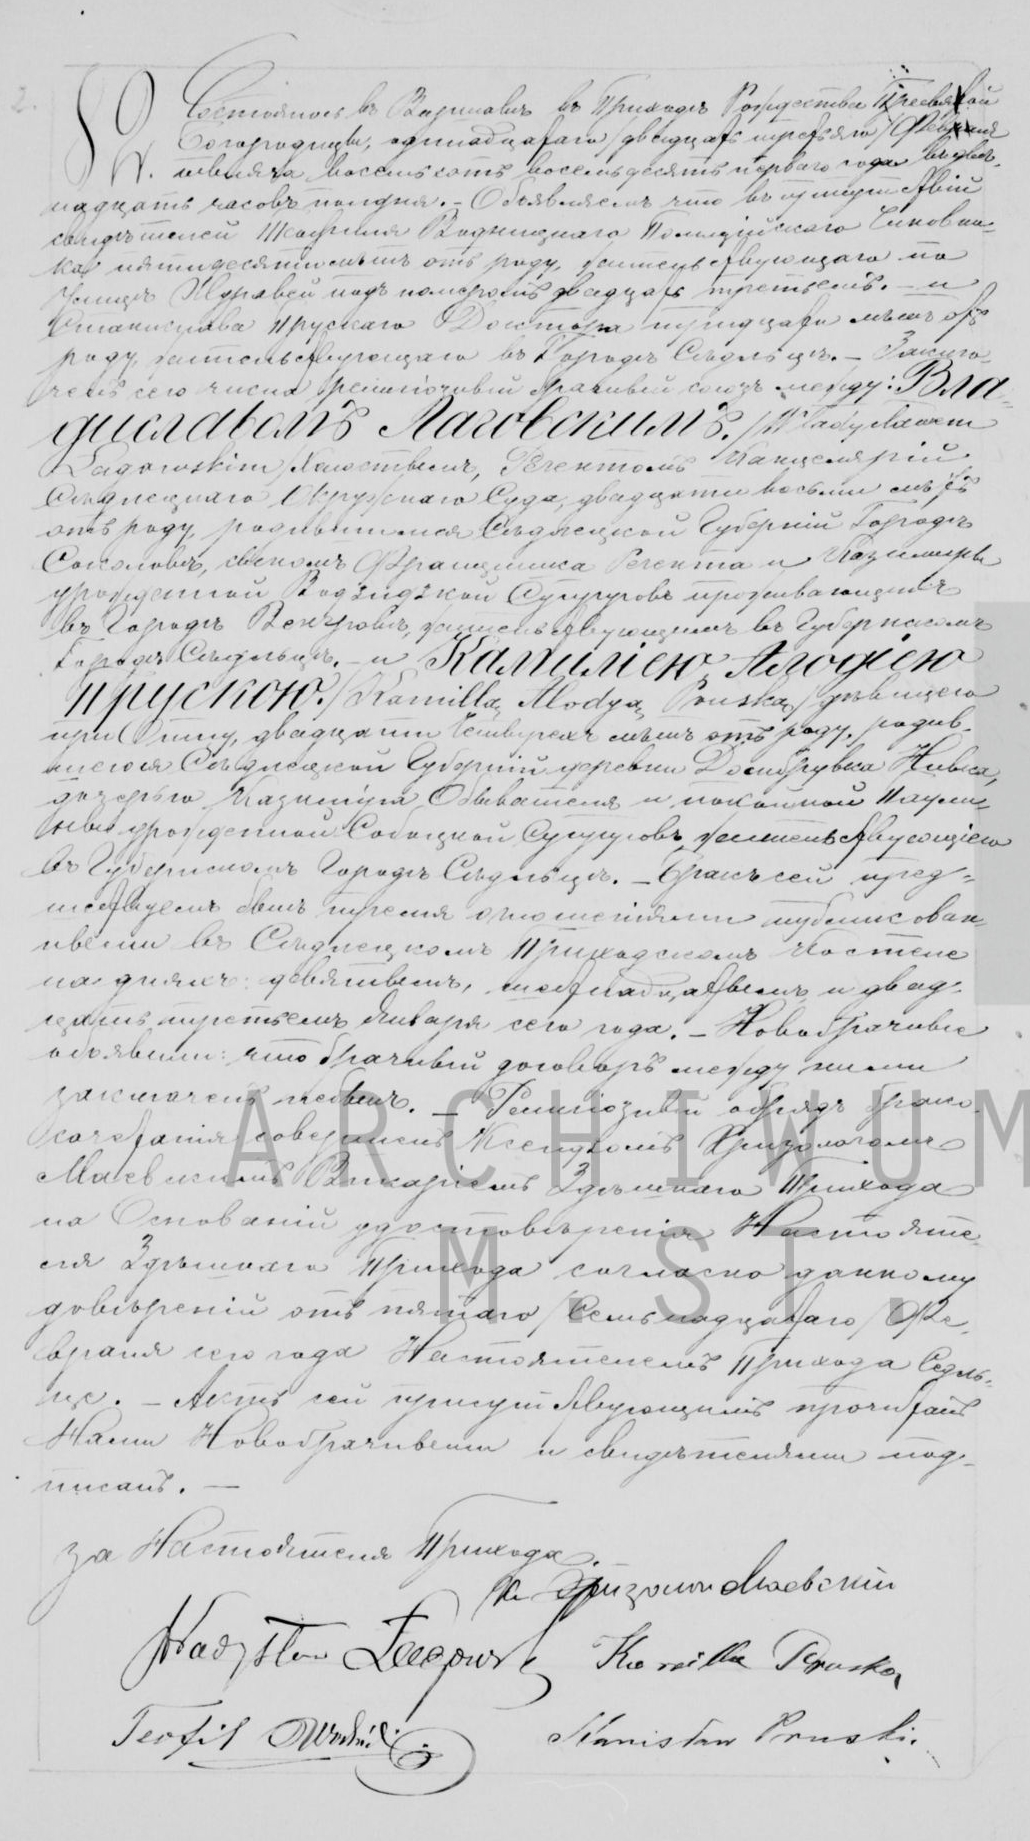 2.
№. Состоялось въ Варшавѣ въ Приходѣ Рождества Пресвятой
Богородицы, одинадцатаго/двадцать третьяго/Февраля
тысяча восемьсотъ восемьдесятъ перваго года въ двѣ-
надцать часовъ полудня. – Объявляемъ что въ присутствій
свидѣтелей Теофиля Водницкаго Полиційскаго Чиновни-
ка пятидесяти лѣтъ отъ роду, жительствующаго по
Улицѣ Журавей подъ номеромъ двадцать третьемъ. – и
Станислава Прускаго Доктора тридцати лѣтъ отъ
роду, жительствующаго въ Городѣ Сѣдльцѣ. – Заклю-
ченъ сего числа религіозный брачный союзъ между: Вла-
диславомъ Лаговскимъ. /Władysławem
Lagowskim/ Холостымъ, Регентомъ Канцелярій
Сѣдлецкаго Окружнаго Суда, двадцати восьми лѣтъ
отъ роду, родившимся Сѣдлецкой Губерній Городѣ
Соколовѣ, сыномъ Францишка Регента и Казимиры
урожденной Супруговъ проживающихъ
въ Городѣ Венгровѣ, жительствующимъ въ Губернскомъ
Городѣ Сѣдльцѣ. – и Камиллією Алодією
Прускою. /Kamillą Alodyą Pruską/ дѣвицею
при Отцу, двадцати четырехъ лѣтъ отъ роду, родив-
шеюся Сѣдлецкой Губерній деревни Домбрувка Нивка,
дочерью Казимира Обывателя и покойной Паули-
ны урожденной Собоцкой Супруговъ, жительствующею
въ Губернскомъ Городѣ Сѣдльцѣ. – Бракъ сей пред-
шествуемъ былъ тремя оглошеніями публикован-
ными въ Сѣдлецкомъ Приходскомъ Костеле
на дняхъ: девятымъ, шестнадцатымъ и двад-
цать третьемъ Января сего года. – Новобрачные
объявили: что брачный договоръ между ними
заключенъ небылъ. – Религіозный обрядъ брако-
сочетанія совершенъ Ксендзомъ Хризологомъ
Маевскимъ Викаріемъ Здѣшнаго Прихода
на Основаній удостовѣренія Настояте-
ля Здѣшнаго Прихода согласно данному
довѣреній отъ пятаго/Семьнадцатаго/Фе-
враля сего года Настоятелемъ Прихода Седль-
це. – Актъ сей присутствующимъ прочитанъ
Нами Новобрачными и свидѣтелями под-
писанъ. –
За Настоятеля Прихода
Кс. Хризолог Маевскій
Władysław Lagowski Kamilla Pruska
Teofil Stanisław Pruski.
ARCHIWUM
M. ST.